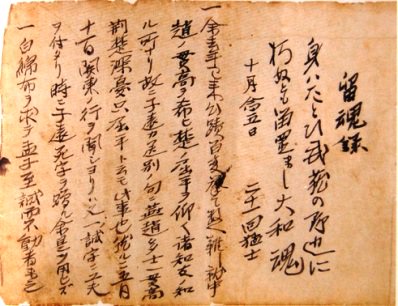 留魂録
身ハたとひ武蔵の野辺に
朽ぬとも留置まし大和魂
十月念五日 二十一回猛士
一 余去年已来心蹟百変挙て数へ難し就中
趙ノ貫高ヲ希ヒ楚ノ屈平ヲ仰ク諸知友ノ知
ル所ナリ故ニ子遠カ送別ノ句ニ燕趙多士一貫高
荊楚深憂只屈平ト云モ此事也然ルニ五月
十一日関東ノ行ヲ聞シヨリハ又一ノ誠字ニ工夫
ヲ付タリ時ニ子遠死字ヲ贈ル余是ヲ用ヒズ
一白綿布ヲ求テ孟子至誠而不動者未之